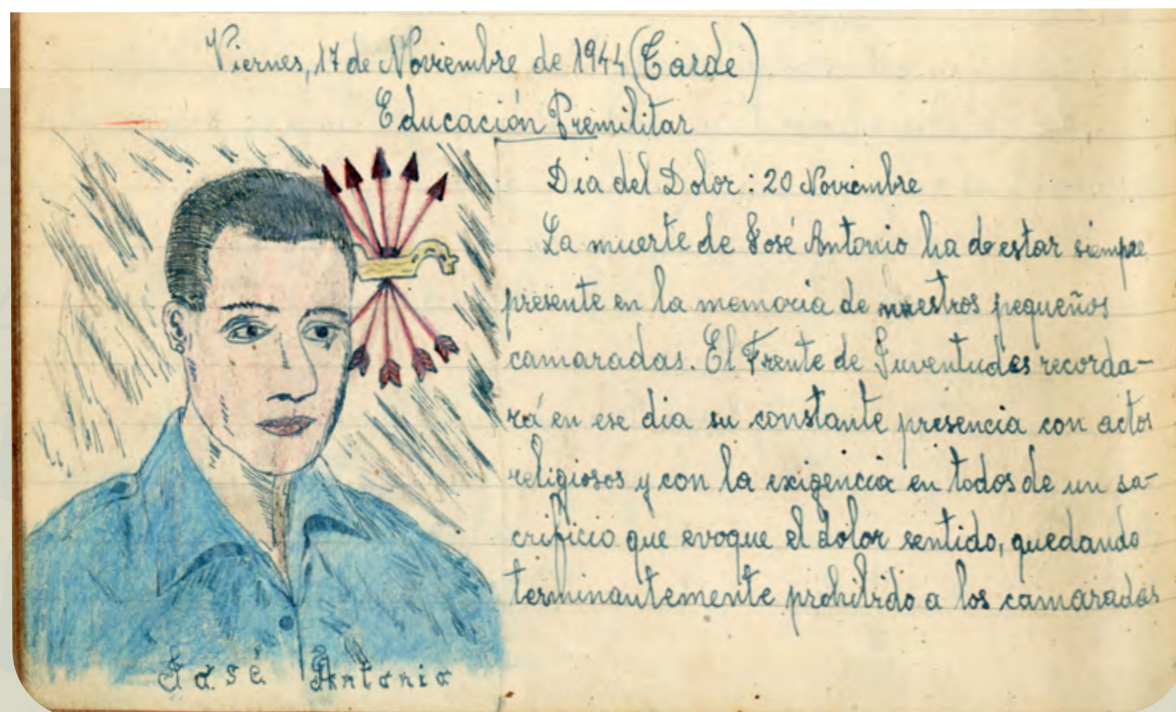 Viernes, 17 de Noviembre de 1944 (Tarde)
Educación Premilitar
Dia del Dolor: 20 Noviembre
La muerte de José Antonio ha de estar siempre
presente en la memoria de nuestros pequeños
camaradas. El Frente de Juventudes recorda-
rá en ese dia su constante presencia con actos
religiosos y con la exigencia en todos de un sa-
crificio que evoque el dolor sentido, quedando
terminantemente prohibido a los camaradas
José Antonio